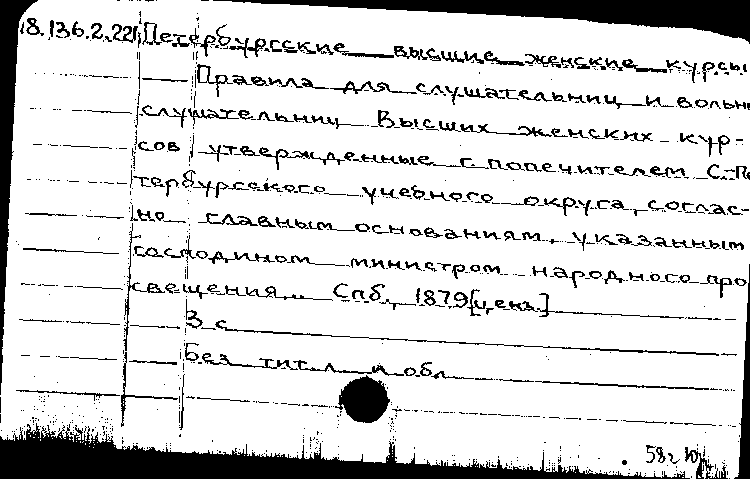 18.136.2.221 Петербургские высшие женские курсы
Правила для слушательниц и вольн
слушательниц Высших женских кур-
сов утвержденные г. попечителем С.-Пе
тербургского учебного округа, соглас-
но главным основаниям, указанным
господином министром народного про
свещения,, Спб., 1879 [ценз.]
3 с
без тит. л и обл